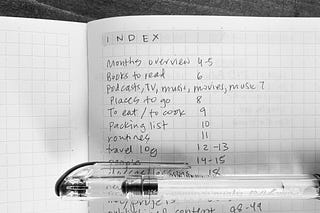 INDEX
Months overview 4-5
Books to read 6
Podcasts, TV, music, movies, music 7
Places to go 8
To eat / to cook 9
Packing list 10
routines 11
travel log 12-13
people 14-15
18
content 48-49